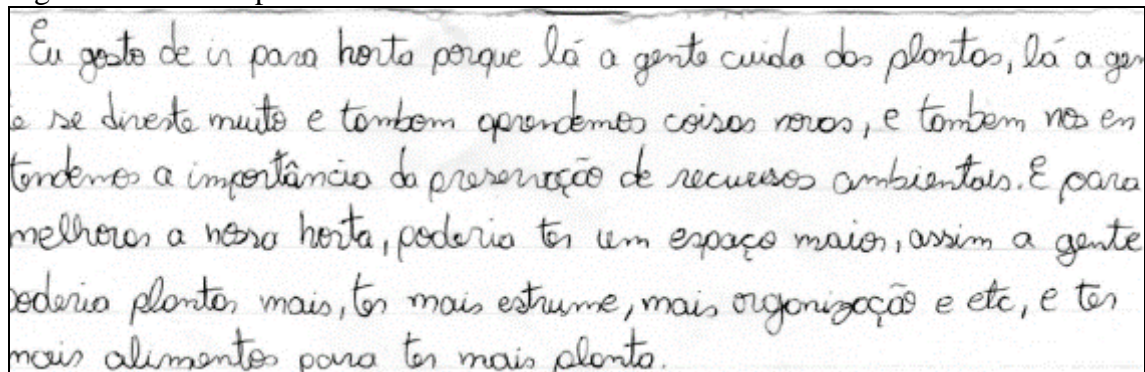 Eu gosto de ir para horta porque lá a gente cuida das plantas, lá a gen
e se diveste muito e tombom aprendemos coisas novas, e tombem nos en
tendemos a importância da preservação de recursos ambientais. E para
melhorar a nossa horta, poderia ter um espaço maior, assim a gente
poderia plantar mais, ter mais estrume, mais organização e etc, e ter
mais alimentos para ter mais planta.